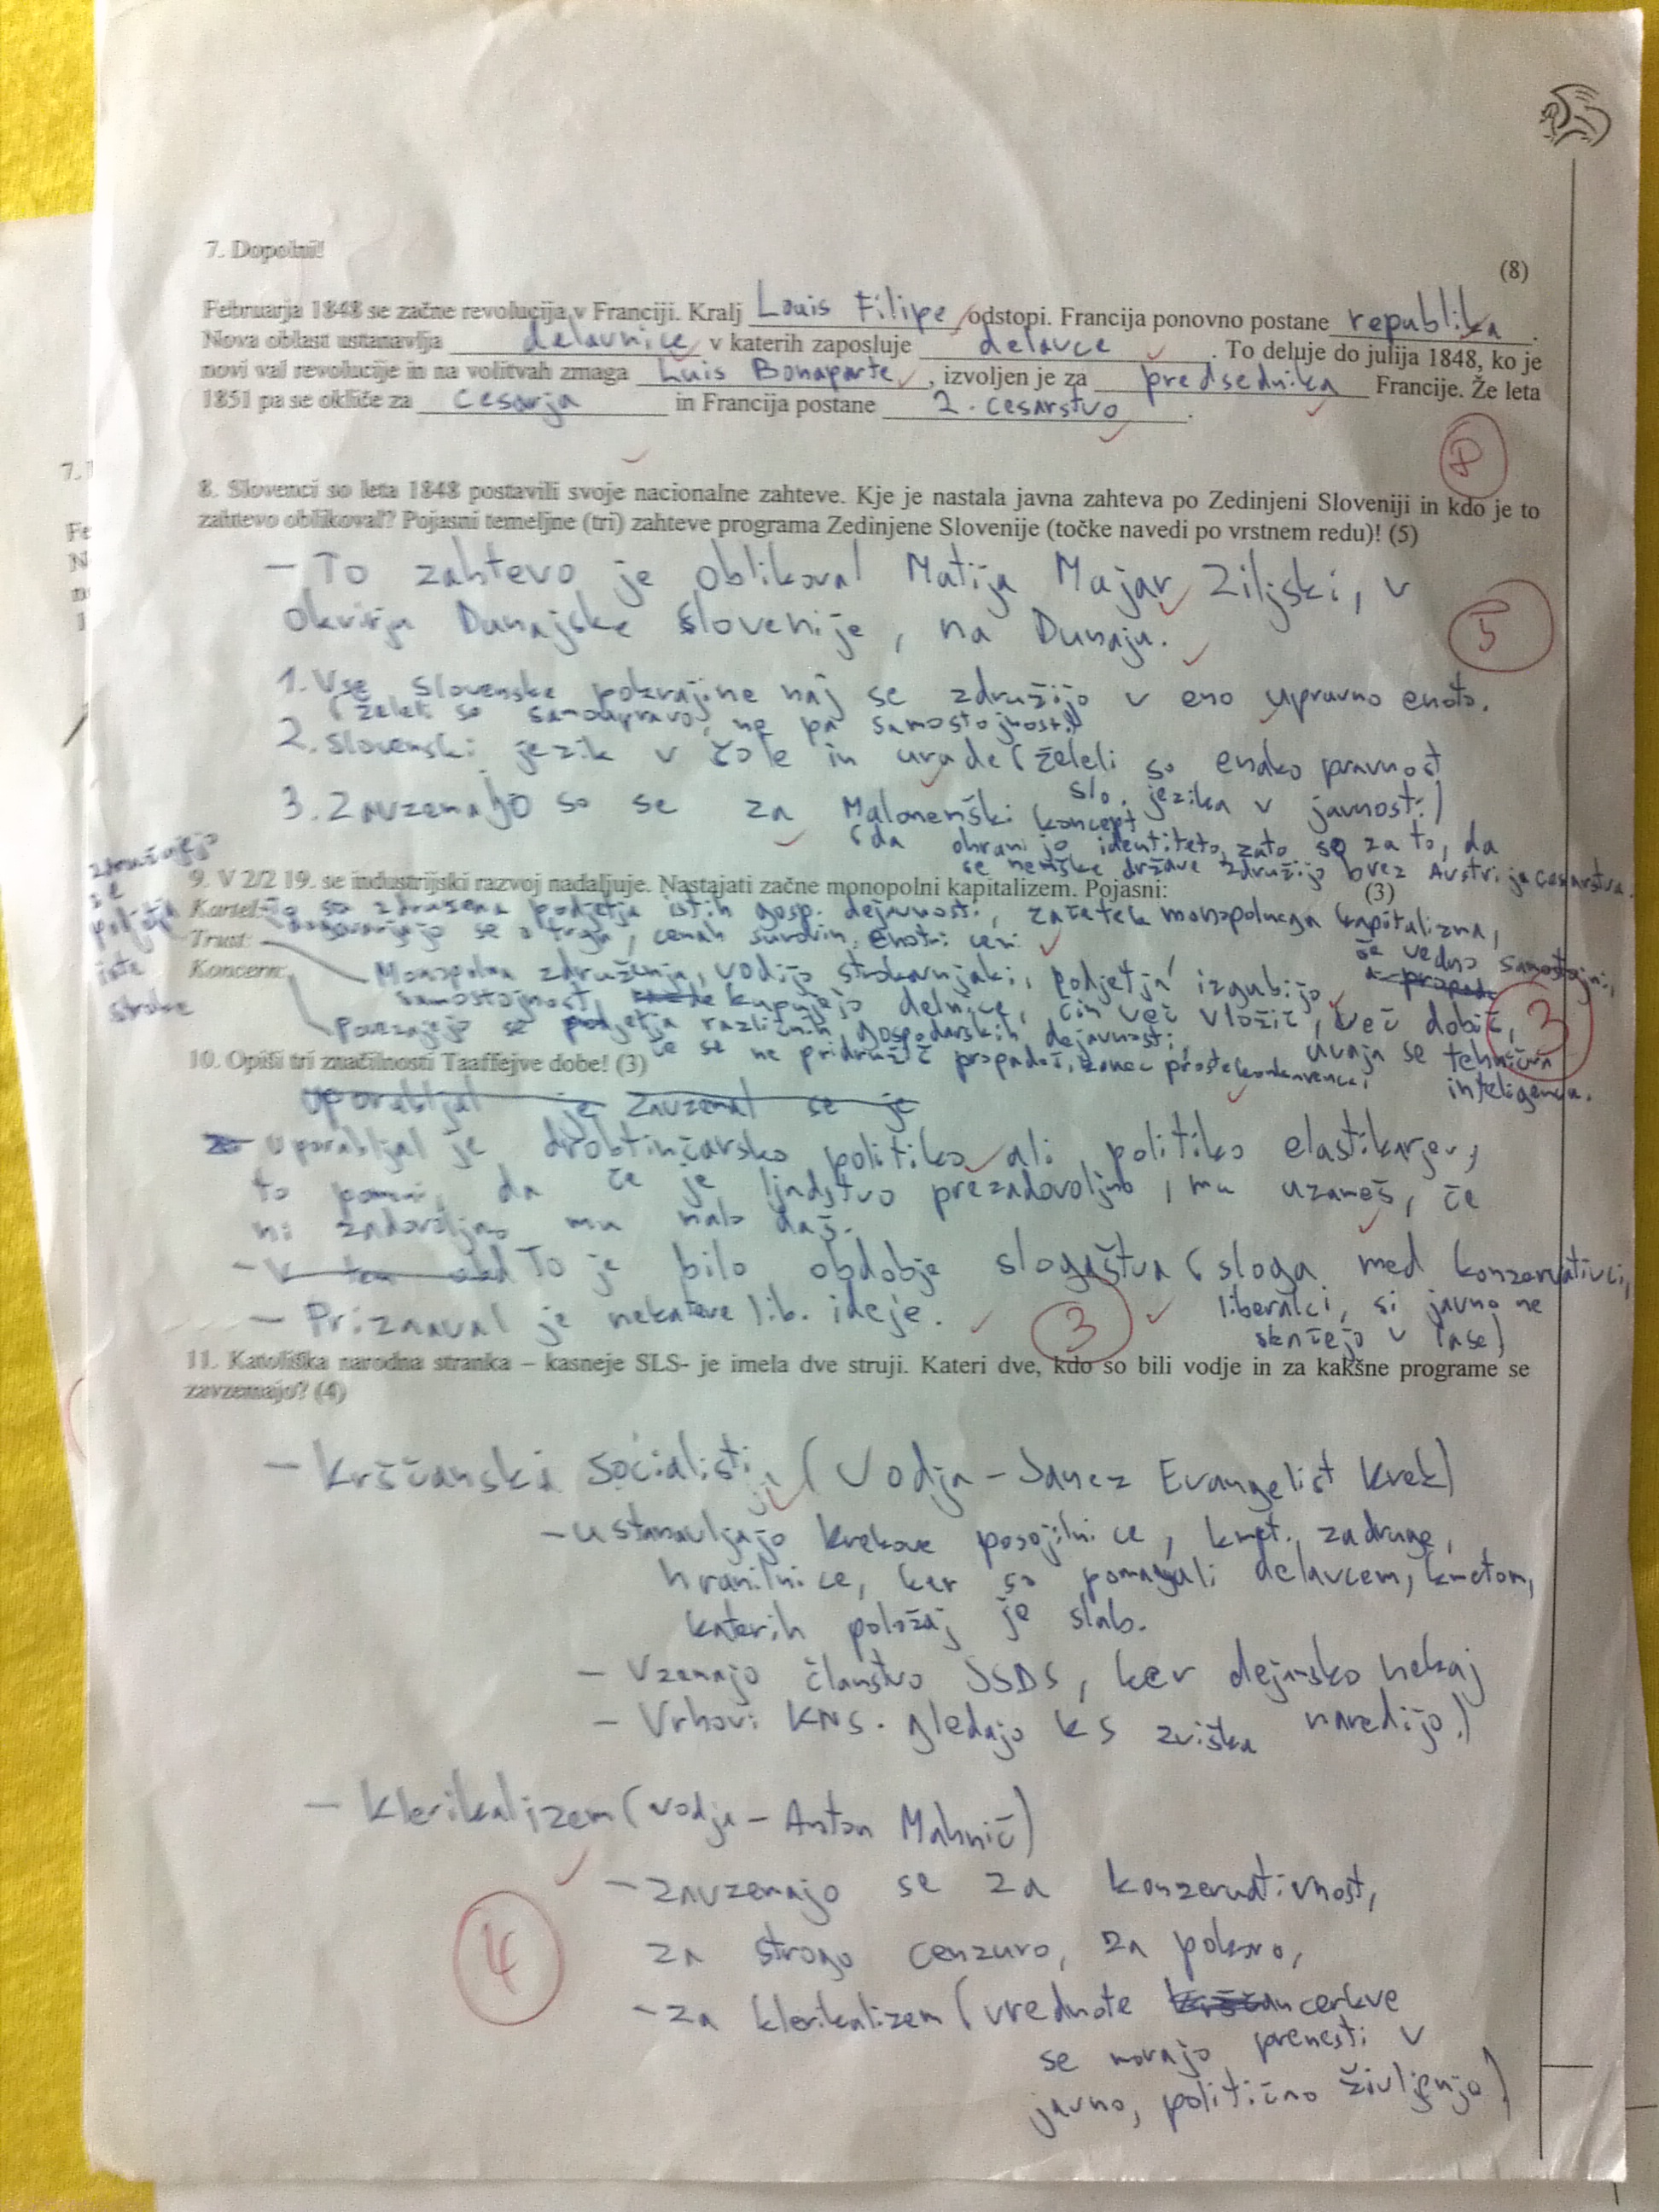 7. Dopolni!
(8)
Februarja 1848 se začne revolucija v Franciji. Kralj Louis Filipe odstopi. Francija ponovno postane republika.
Nova oblast ustanavlja delavnice v katerih zaposluje delavce. To deluje do julija 1848, ko je
novi val revolucije in na volitvah zmaga Luis Bonaparte, izvoljen je za predsednika Francije. Že leta
1851 pa se okliče za cesarja in Francija postane 2. cesarstvo.
8
8. Slovenci so leta 1848 postavili svoje nacionalne zahteve. Kje je nastala javna zahteva po Zedinjeni Sloveniji in kdo je to
zahtevo oblikoval? Pojasni temeljne (tri) zahteve programa Zedinjene Slovenije (točke navedi po vrstnem redu)! (5)
- To zahtevo je oblikoval Matija Majar Ziljski, v
okvirju Dunajske Slovenije, na Dunaju.
5
1. Vse slovenske pokrajine naj se združijo v eno upravno enoto.
(želeli so samoupravo, ne pa samostojnosti)
2. Slovenski jezik v šole in urade (želeli so enako pravnost
slo. jezika v javnosti)
3. Zavzemajo so se za Malonemški koncept
(da ohranijo identiteto, zato so za to, da
se nemške države združijo brez Avstrijs cesarstva.
9. V 2/2 19. se industrijski razvoj nadaljuje. Nastajati začne monopolni kapitalizem. Pojasni: (3)
združujejo
se
podjetja
iste
stroke
Kartel: To so združena podjetja istih gosp. dejavnosti, začetek monopolnega kapitalizma,
dogovarjajo se o trgu, cenah surovin, enotni ceni
še vedno samostojni,
Trust:
Monopolna združenja, vodijo strokovnjaki, podjetja izgubijo
samostojnost, kupujejo delnice, čim več vložiš, več dobiš,
3
Koncern:
Povezujejo se podjetja različnih gospodarskih dejavnosti,
če se ne pridružiš propadeš, konec proste konkurence, uvaja se tehnična
inteligenca.
10. Opiši tri značilnosti Taaffejve dobe! (3)
Uporabljal je Zavzemal se je
- Uporabljal je drobtinčarsko politiko ali politiko elastikarjev,
to pomeni, da če je ljudstvo prezadovoljno, mu vzameš, če
ni zadovoljno mu malo daš.
- To je bilo obdobje slogaštva (sloga med konzervativci,
liberalci, si javno ne
skačejo v lase)
- Priznaval je nekatere lib. ideje.
3
11. Katoliška narodna stranka – kasneje SLS- je imela dve struji. Kateri dve, kdo so bili vodje in za kakšne programe se
zavzemajo? (4)
- Krščanski socialisti (Vodja - Janez Evangelist Krek)
- ustanavljajo Krekove posojilnice, kmet. zadruge,
hranilnice, ker so pomagali delavcem, kmetom,
katerih položaj je slab.
- Vzemajo članstvo JSDS, ker dejansko nekaj
naredijo.)
- Vrhovi KNS. gledajo KS zviška
- klerikalizem (vodja - Anton Mahnič)
- zavzemajo se za konzervativnost,
za strogo cenzuro, za pokoro,
4
- za klerikalizem (vrednote cerkve
se morajo prenesti v
javno, politično življenje)